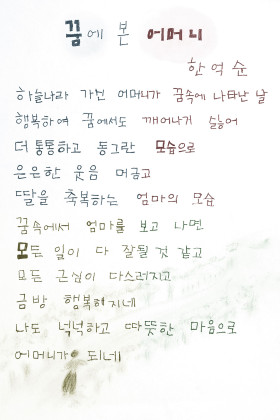 꿈에 본 어머니
한억순
하늘나라 가신 어머니가 꿈속에 나타난 날
행복하여 꿈에서도 깨어나기 싫어
더 통통하고 동그란 모습으로
은은한 웃음 머금고
딸을 축복하는 엄마의 모습
꿈속에서 엄마를 보고 나면
모든 일이 다 잘될 것 같고
모든 근심이 다스려지고
금방 행복해지네
나도 넉넉하고 따뜻한 마음으로
어머니가 되네